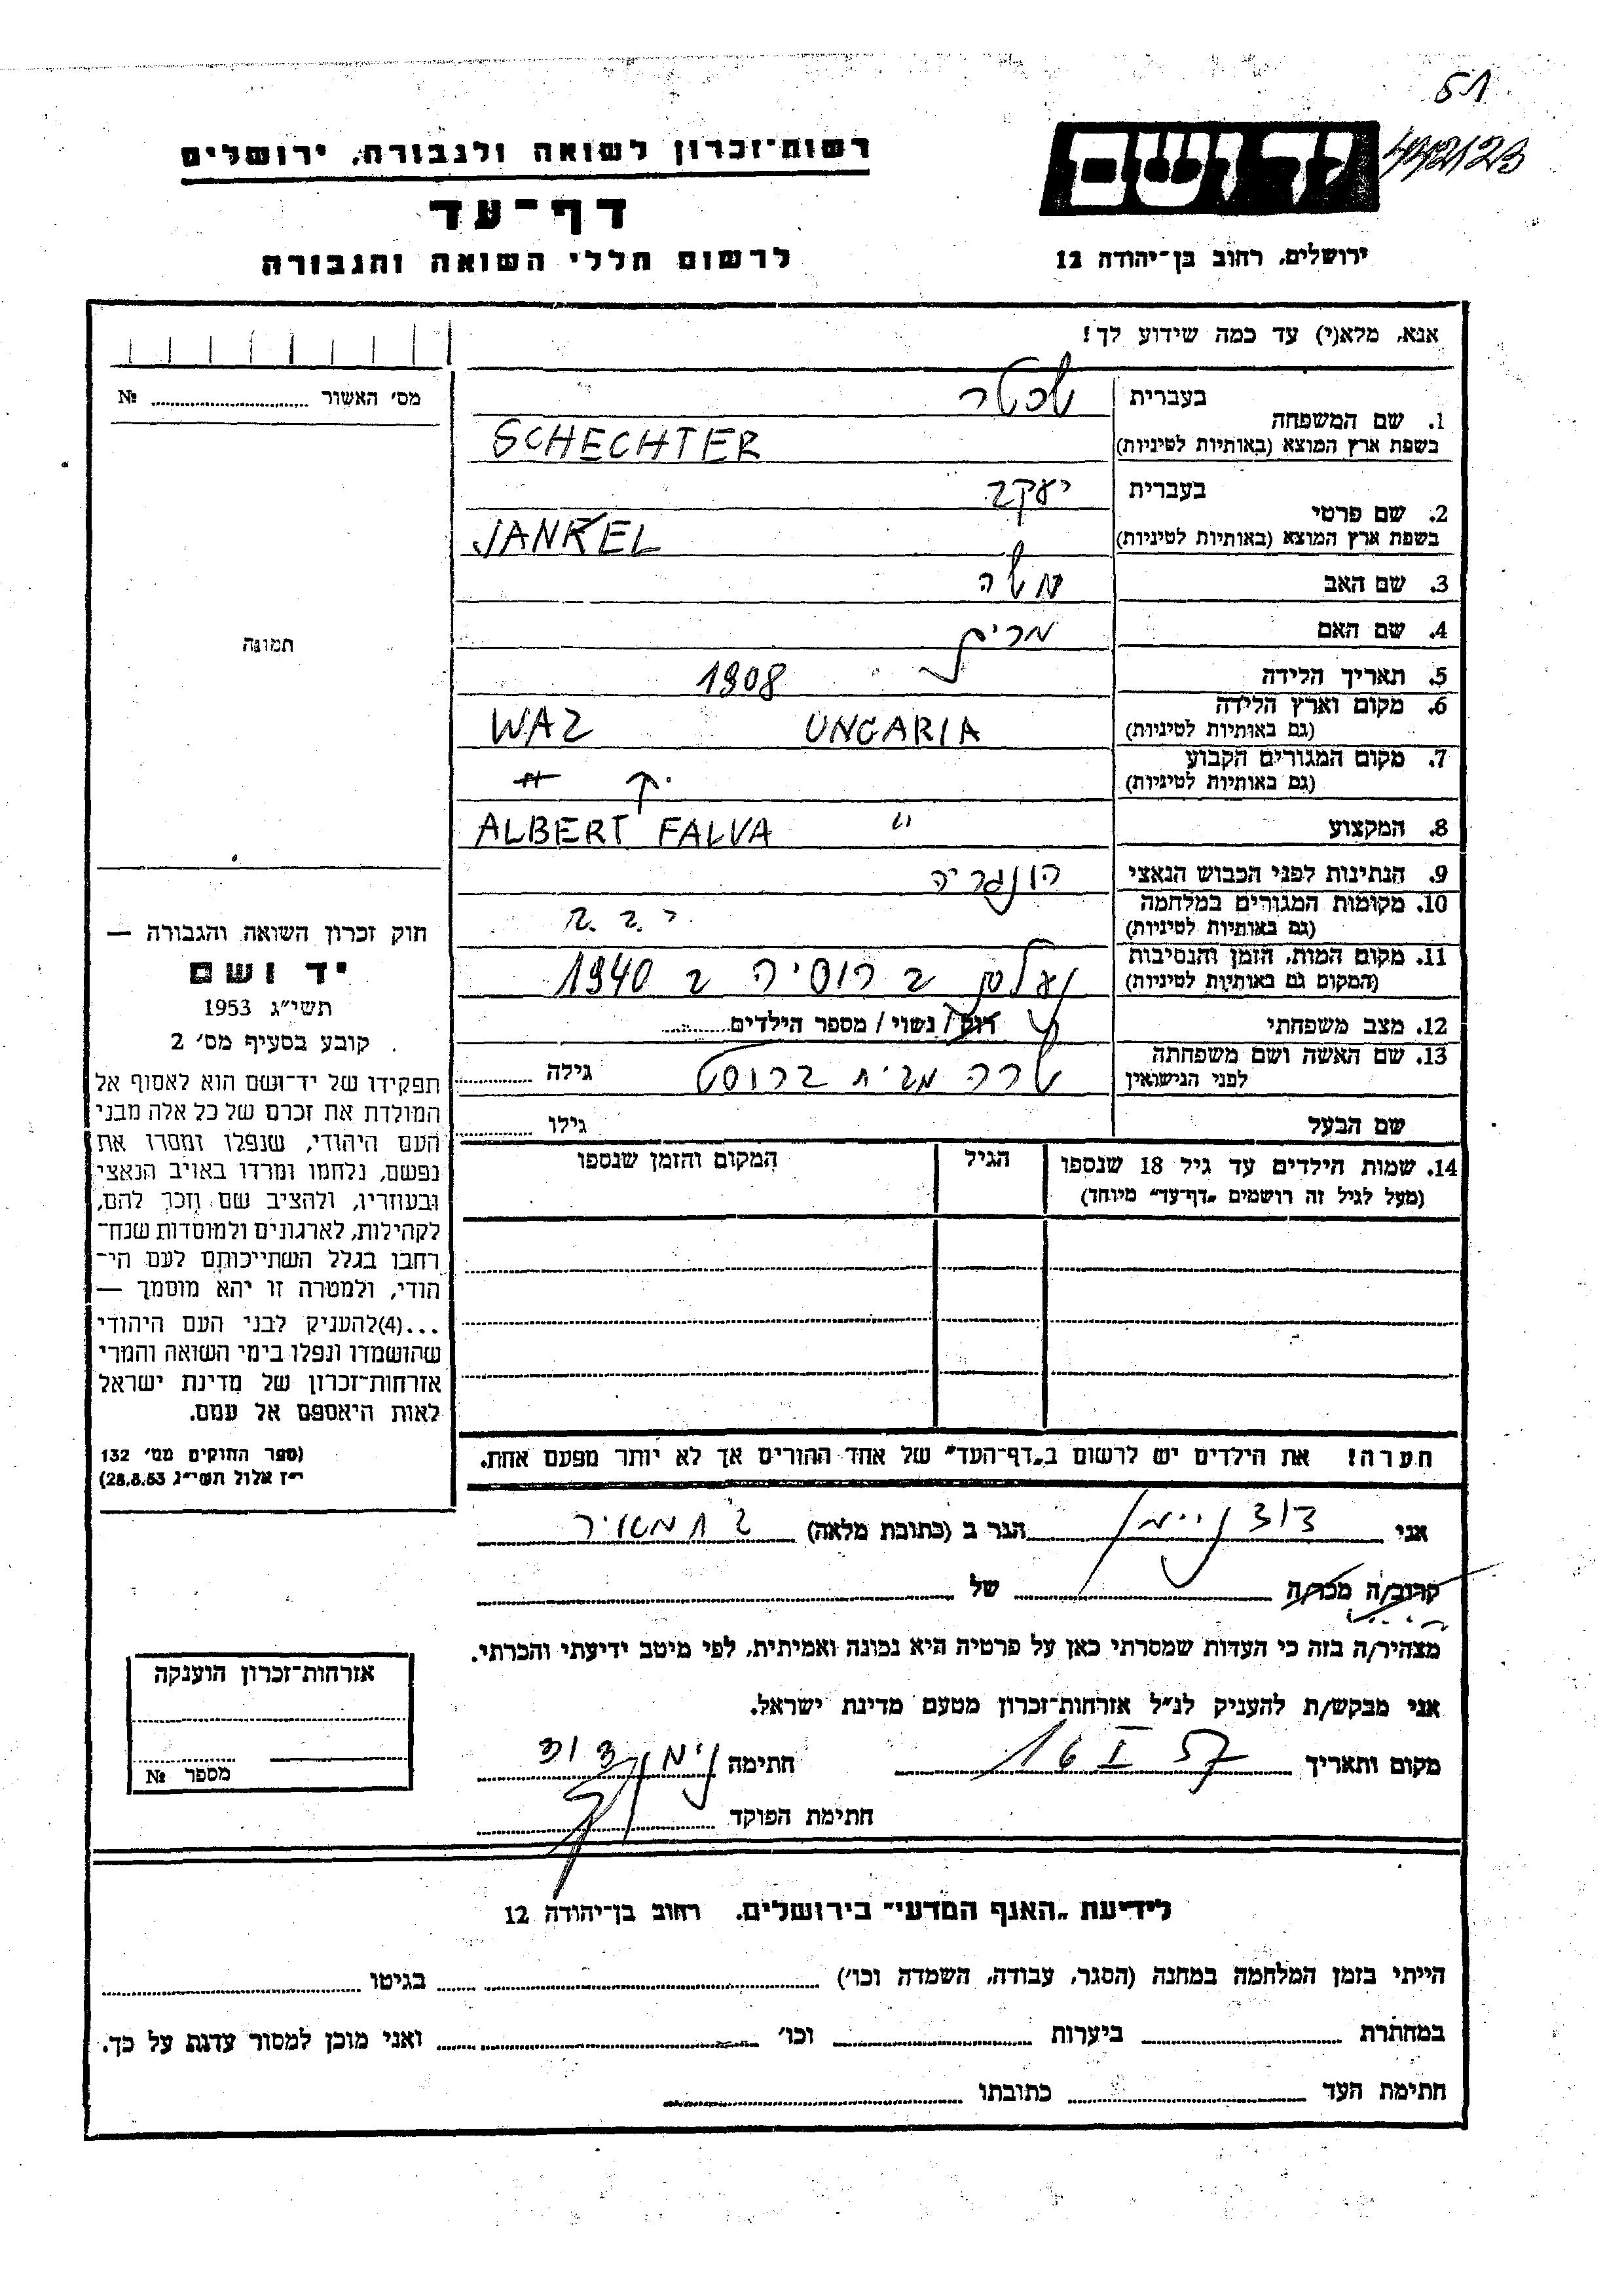 51
רשות־זכרון לשואה ולגבורה, ירושלים
דף־עד
לרשום חללי השואה והגבורה
ירושלים, רחוב בן־יהודה 12
אנא, מלא(י) עד כמה שידוע לך!
מס׳ האשור № 
1. שם המשפחה בעברית שכטר
בשפת ארץ המוצא (באותיות לטיניות) SCHECHTER
2. שם פרטי בעברית יעקב
בשפת ארץ המוצא (באותיות לטיניות) JANKEL
תמונה
3. שם האב משה
4. שם האם מרים
5. תאריך הלידה 1908
6. מקום וארץ הלידה
(גם באותיות לטיניות) UNGARIA WAZ
7. מקום המגורים הקבוע
(גם באותיות לטיניות)
8. המקצוע " ALBERT FALVA
9. הנתינות לפני הכבוש הנאצי הונגריה
10. מקומות המגורים במלחמה
(גם באותיות לטיניות)
11. מקום המות, הזמן והנסיבות
(המקום גם באותיות לטיניות) נעלם ב רוסיה ב 1940
12. מצב משפחתי רוק / נשוי / מספר הילדים
13. שם האשה ושם משפחתה
לפני הנישואין שרה מבית ברוסט גילה
שם הבעל גילו
14. שמות הילדים עד גיל 18 שנספו
(מעל לגיל זה רושמים „דף־עד״ מיוחד)
הגיל
המקום והזמן שנספו
חוק זכרון השואה והגבורה —
יד ושם
תשי״ג 1953
קובע בסעיף מס׳ 2
תפקידו של יד־ושם הוא לאסוף אל
המולדת את זכרם של כל אלה מבני
העם היהודי, שנפלו ומסרו את
נפשם, נלחמו ומרדו באויב הנאצי
ובעוזריו, ולהציב שם וזכר להם,
לקהילות, לארגונים ולמוסדות שנח־
רחבו בגלל השתייכותם לעם הי־
הודי, ולמטרה זו יהא מוסמך —
...(4)להעניק לבני העם היהודי
שהושמדו ונפלו בימי השואה והמרי
אזרחות־זכרון של מדינת ישראל
לאות היאספם אל עמם.
(ספר החוקים מס׳ 132
י״ז אלול תשי״ג 28.8.53)
הערה! את הילדים יש לרשום ב„דף־העד״ של אחד ההורים אך לא יותר מפעם אחת.
אני דוד ניימן הגר ב (כתובת מלאה)
קרוב/ה מכר/ה של
מצהיר/ה בזה כי העדות שמסרתי כאן על פרטיה היא נכונה ואמיתית, לפי מיטב ידיעתי והכרתי.
אני מבקש/ת להעניק לנ״ל אזרחות־זכרון מטעם מדינת ישראל.
מקום ותאריך 16 I 57 חתימה נימן דוד
חתימת הפוקד
אזרחות־זכרון הוענקה
מספר №
לידיעת „האגף המדעי״ בירושלים, רחוב בן־יהודה 12
הייתי בזמן המלחמה במחנה (הסגר, עבודה, השמדה וכו׳) בגיטו
במחתרת ביערות וכו׳ ואני מוכן למסור עדות על כך.
חתימת העד כתובתו